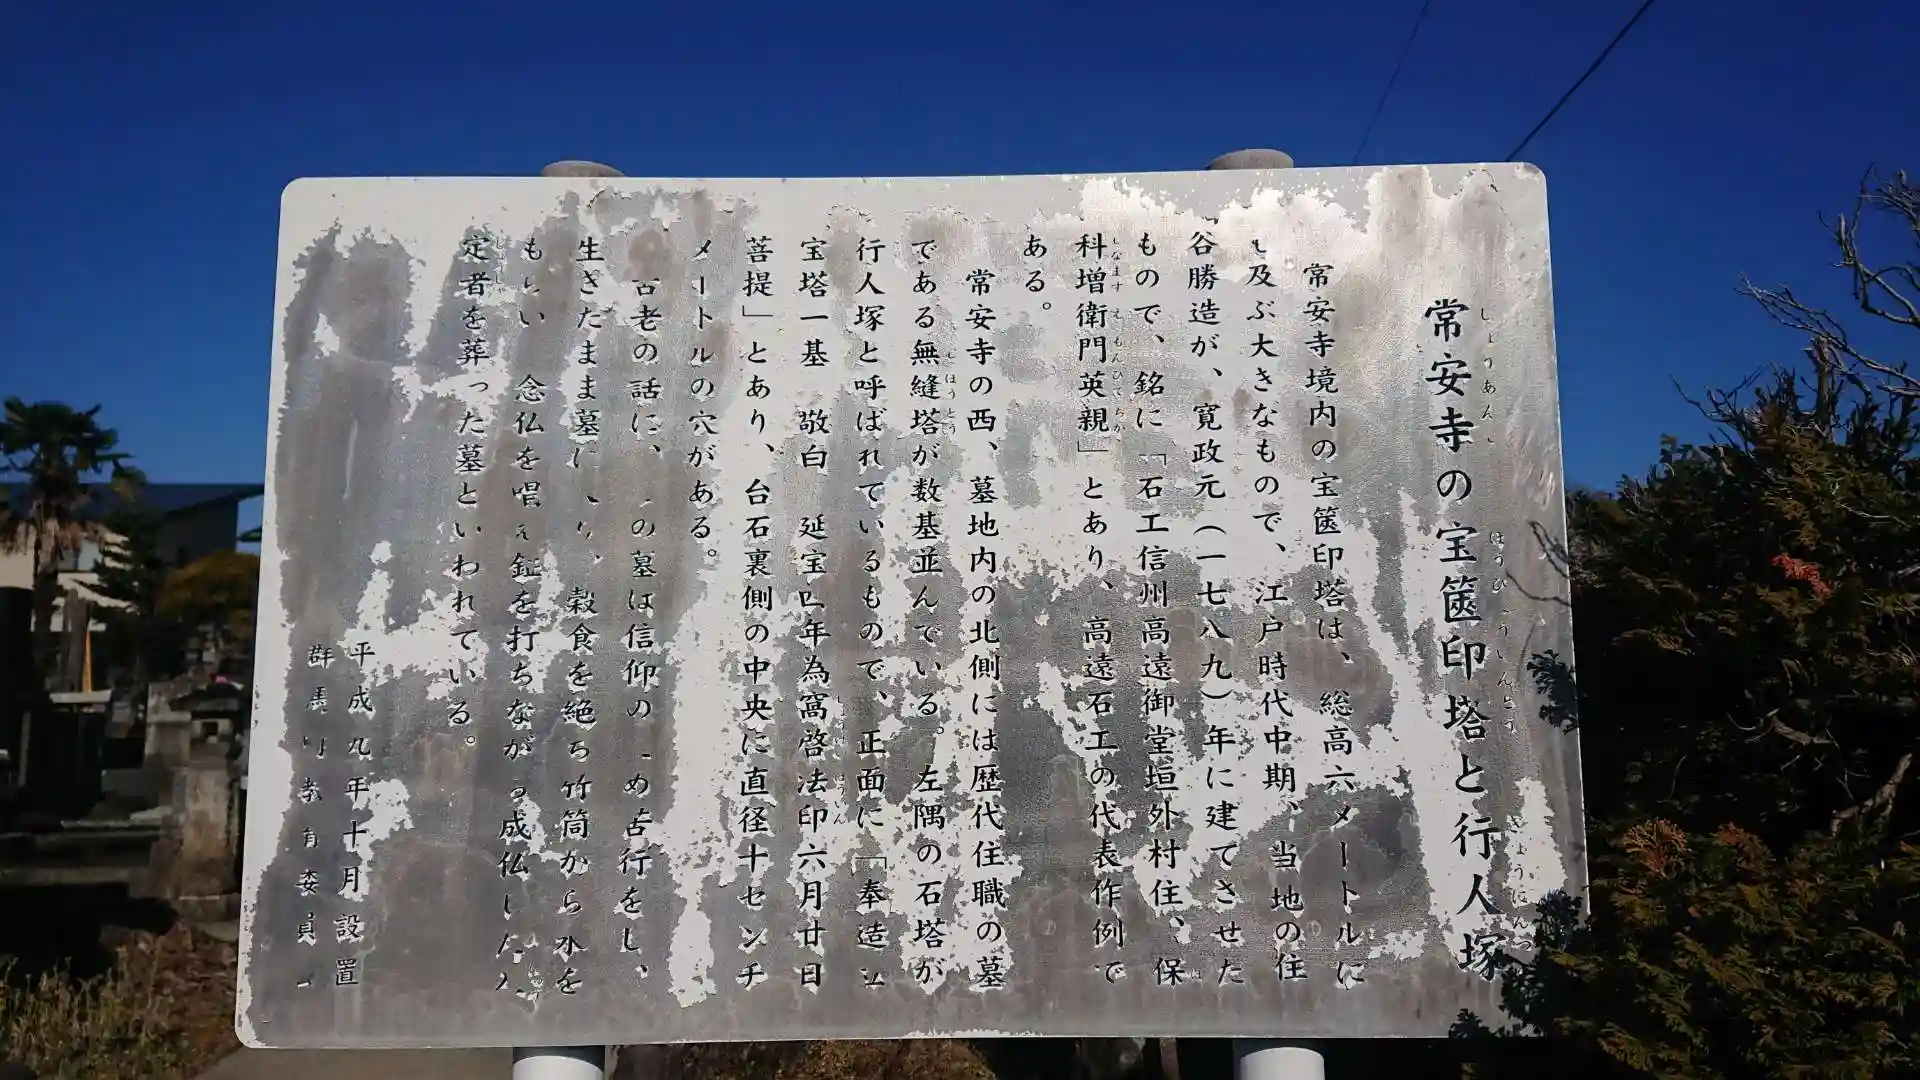 常安寺の宝篋印塔と行人塚
常安寺境内の宝篋印塔は、総高六メートルに
及ぶ大きなもので、江戸時代中期、当地の住
谷勝造が、寛政元(一七八九)年に建てさせた
もので、銘に「石工信州高遠御堂垣外村住、保
科増衛門英親」とあり、高遠石工の代表作例で
ある。
常安寺の西、墓地内の北側には歴代住職の墓
である無縫塔が数基並んでいる。左隅の石塔が
行人塚と呼ばれているもので、正面に「奉造立
宝塔一基 敬白 延宝四年為窩啓法印六月廿日
菩提」とあり、台石裏側の中央に直径十センチ
メートルの穴がある。
古老の話に、の墓は信仰のため苦行をし、
生きたまま墓に入り、穀食を絶ち竹筒から水を
もらい 念仏を唱え鉦を打ちながら成仏した入
定者を葬った墓といわれている。
平成九年十月設置
群馬町教育委員会